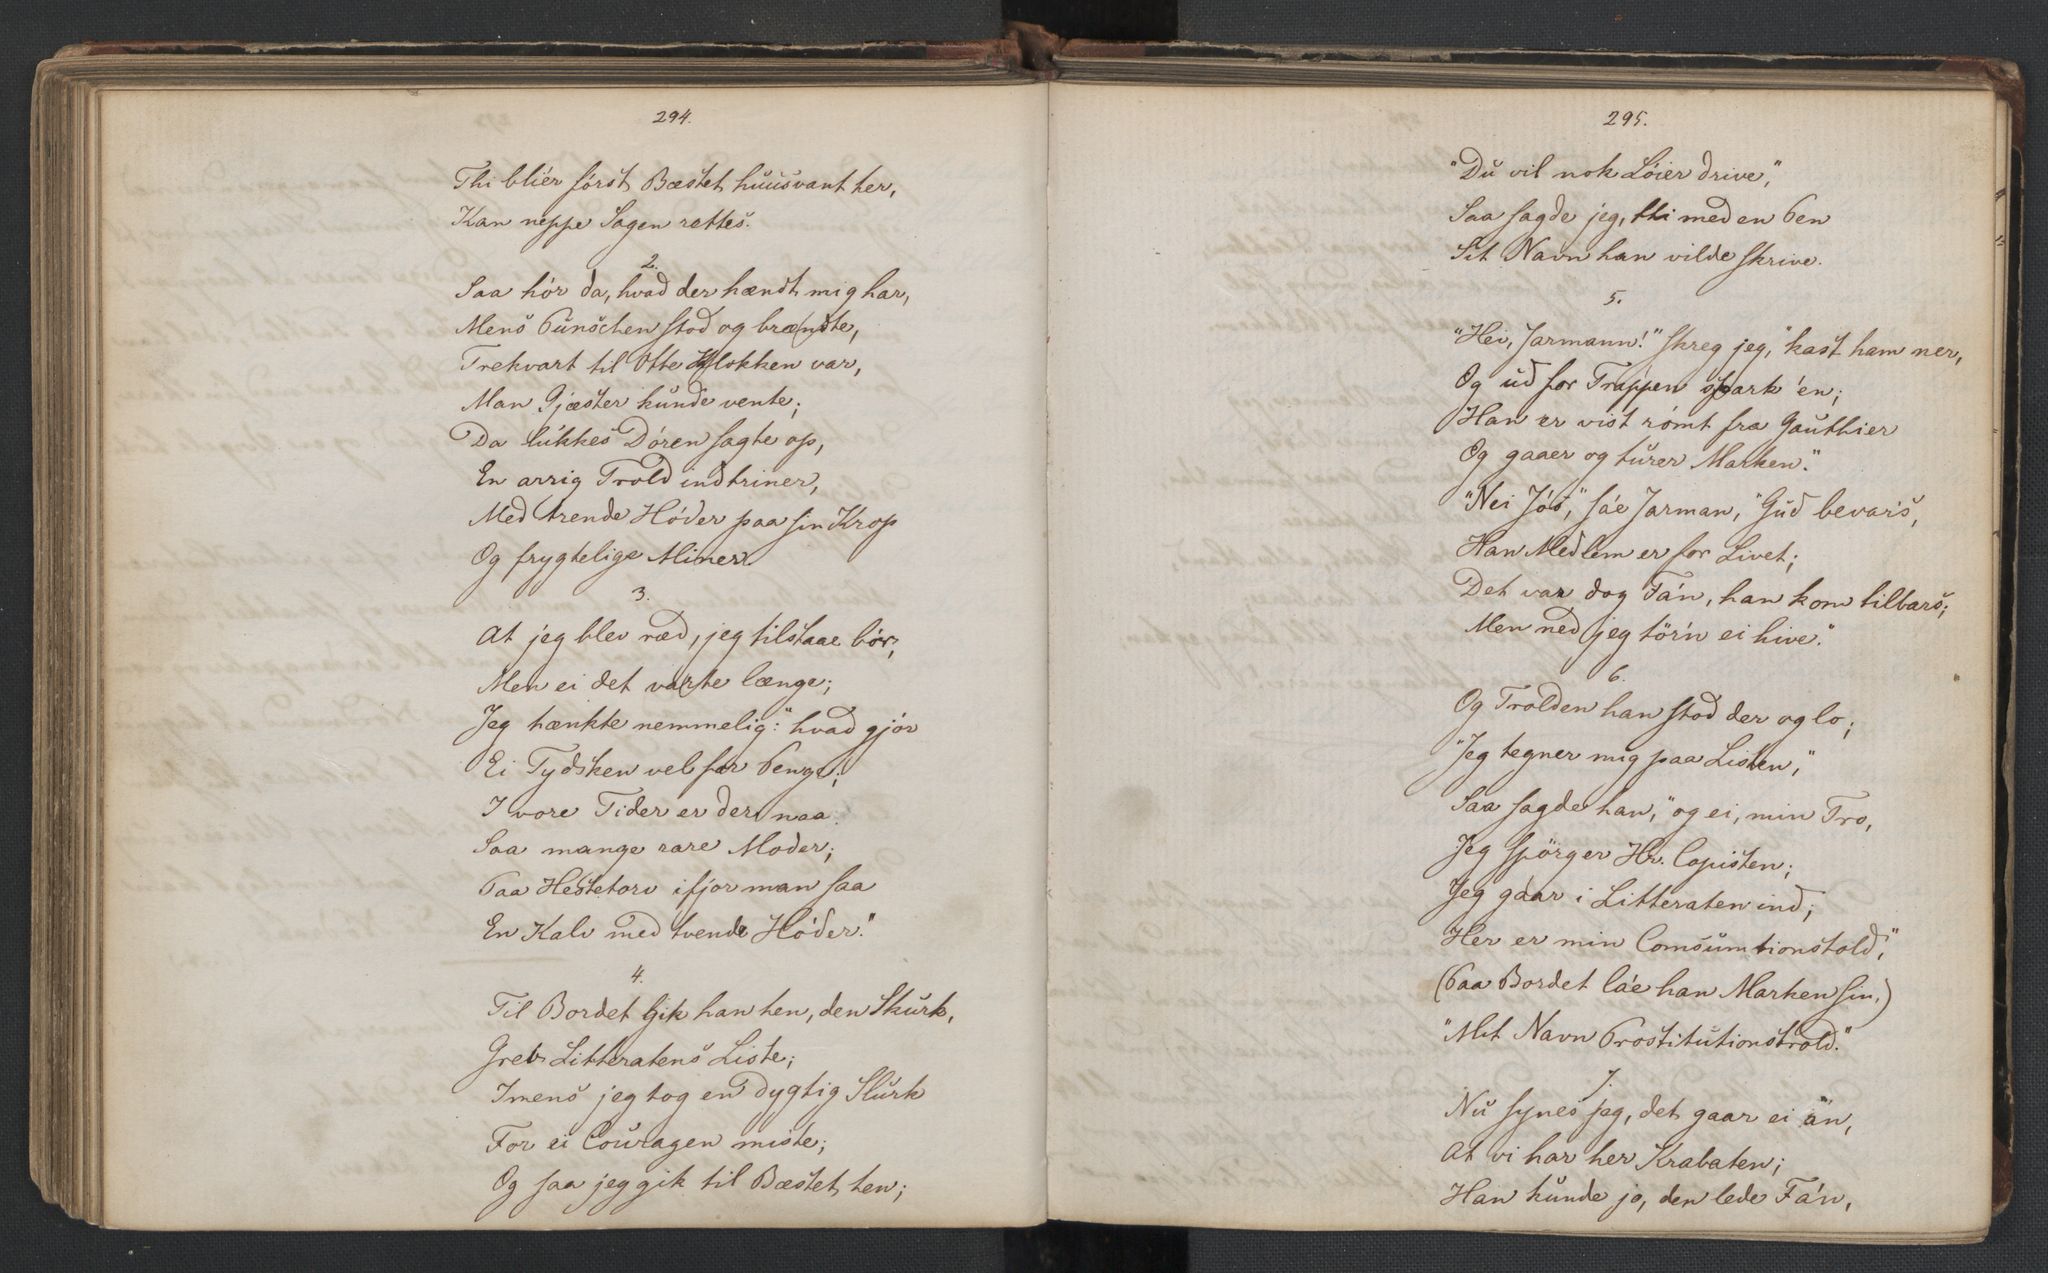 294.
Thi blier först Bæstet huusvant her,
Kan neppe Sagen rettes.
2.
Saa hör da, hvad der hændt mig har,
Mens Punschen stod og brændte,
Trekvart til Otte Klokken var,
Man Gjæster kunde vente;
Da lukkes Dören sagte op,
En arrig Trold indtriner,
Med trende Höder paa sin Krop
Og frygtelige Miner.
3.
At jeg blev ræd, jeg tilstaae bör,
Men ei det varte længe;
Jeg tænkte nemmelig: "hvad gjör
Ei Tydsken vel for Penge;
I vore Tider er der naa
Saa mange rare Moder;
Paa Hestetorv ifjor man saa
En Kalv med tvende Höder."
4.
Til Bordet gik han hen, den Skurk,
Greb Litteratens Liste;
Imens jeg tog en dygtig Slurk
For ei Couragen miste;
Og saa jeg gik til Bæstet hen;
295.
"Du vil nok Löier drive,"
Saa sagde jeg, thi med en Pen
Sit Navn han vilde skrive.
5.
"Hei, Jarmann!" skreg jeg, "kast ham ner,
Og ud for Trappen spark 'en;
Han er vist römt fra Gauthier
Og gaaer og turer Marken."
"Nei Jös," sáe Jarman, "Gud bevar's,
Han Medlem er for Livet;
Det var dog Fa'n, han kom tilbars;
Men ned jeg tör'n ei hive."
6.
Og Trolden han stod der og lo;
"Jeg tegner mig paa Listen,"
Saa sagde han, "og ei, min Tro,
Jeg spörger Hr. Copisten;
Jeg gaar i Litteraten ind;
Her er min Comsumtionstold,"
(Paa Bordet láe han Marken sin,)
"Mit Navn Prostitutionstrold."
7.
Nu synes jeg, det gaar ei an,
At vi har her Krabaten;
Han kunde jo, den lede Fa'n,